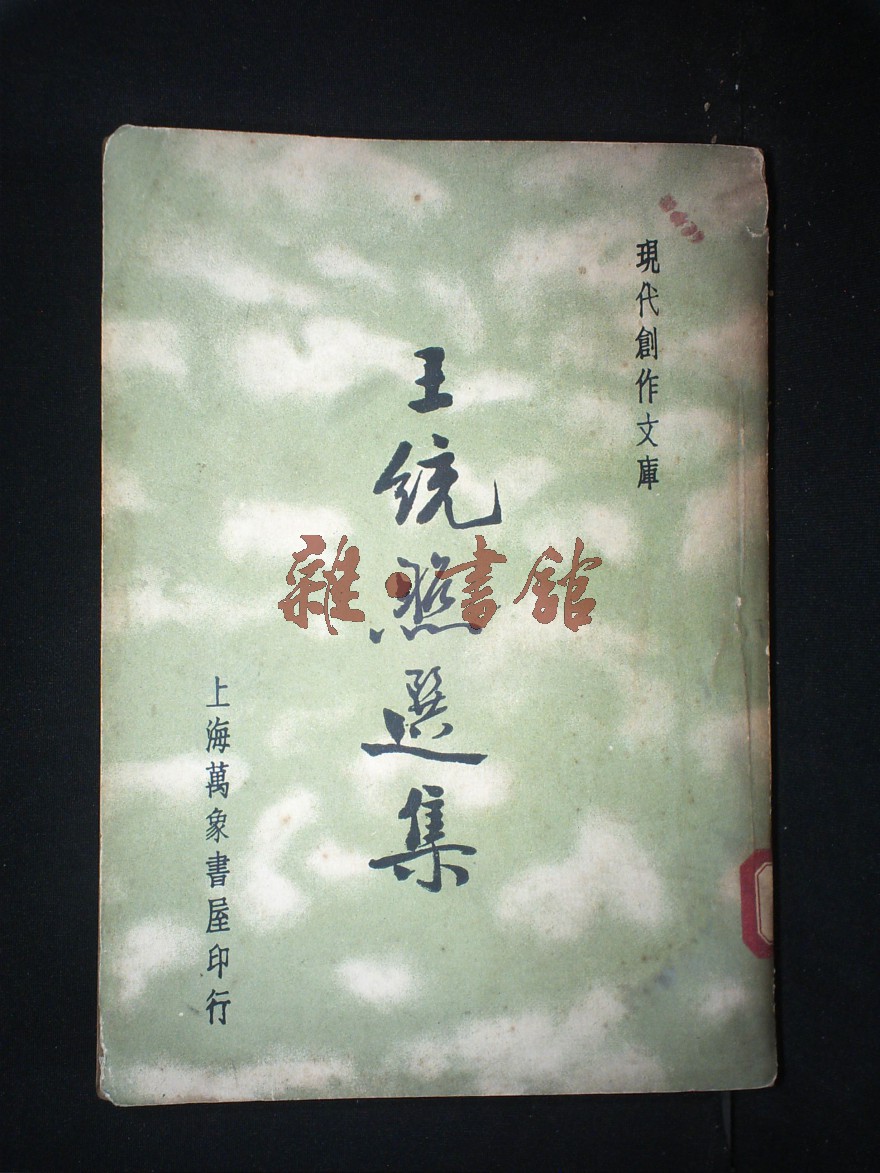 現代創作文庫
王統照選集
上海萬象書屋印行
雜·書館